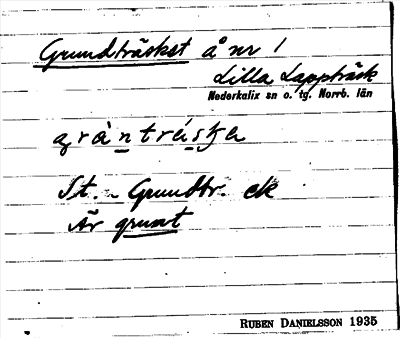 Grundträsket å nr 1
Lilla Lappträsk
Nederkalix sn o. tg. Norrb. län
gràntráska
St. ~ Grundtr. ek
Är grunt
RUBEN DANIELSSON 1935